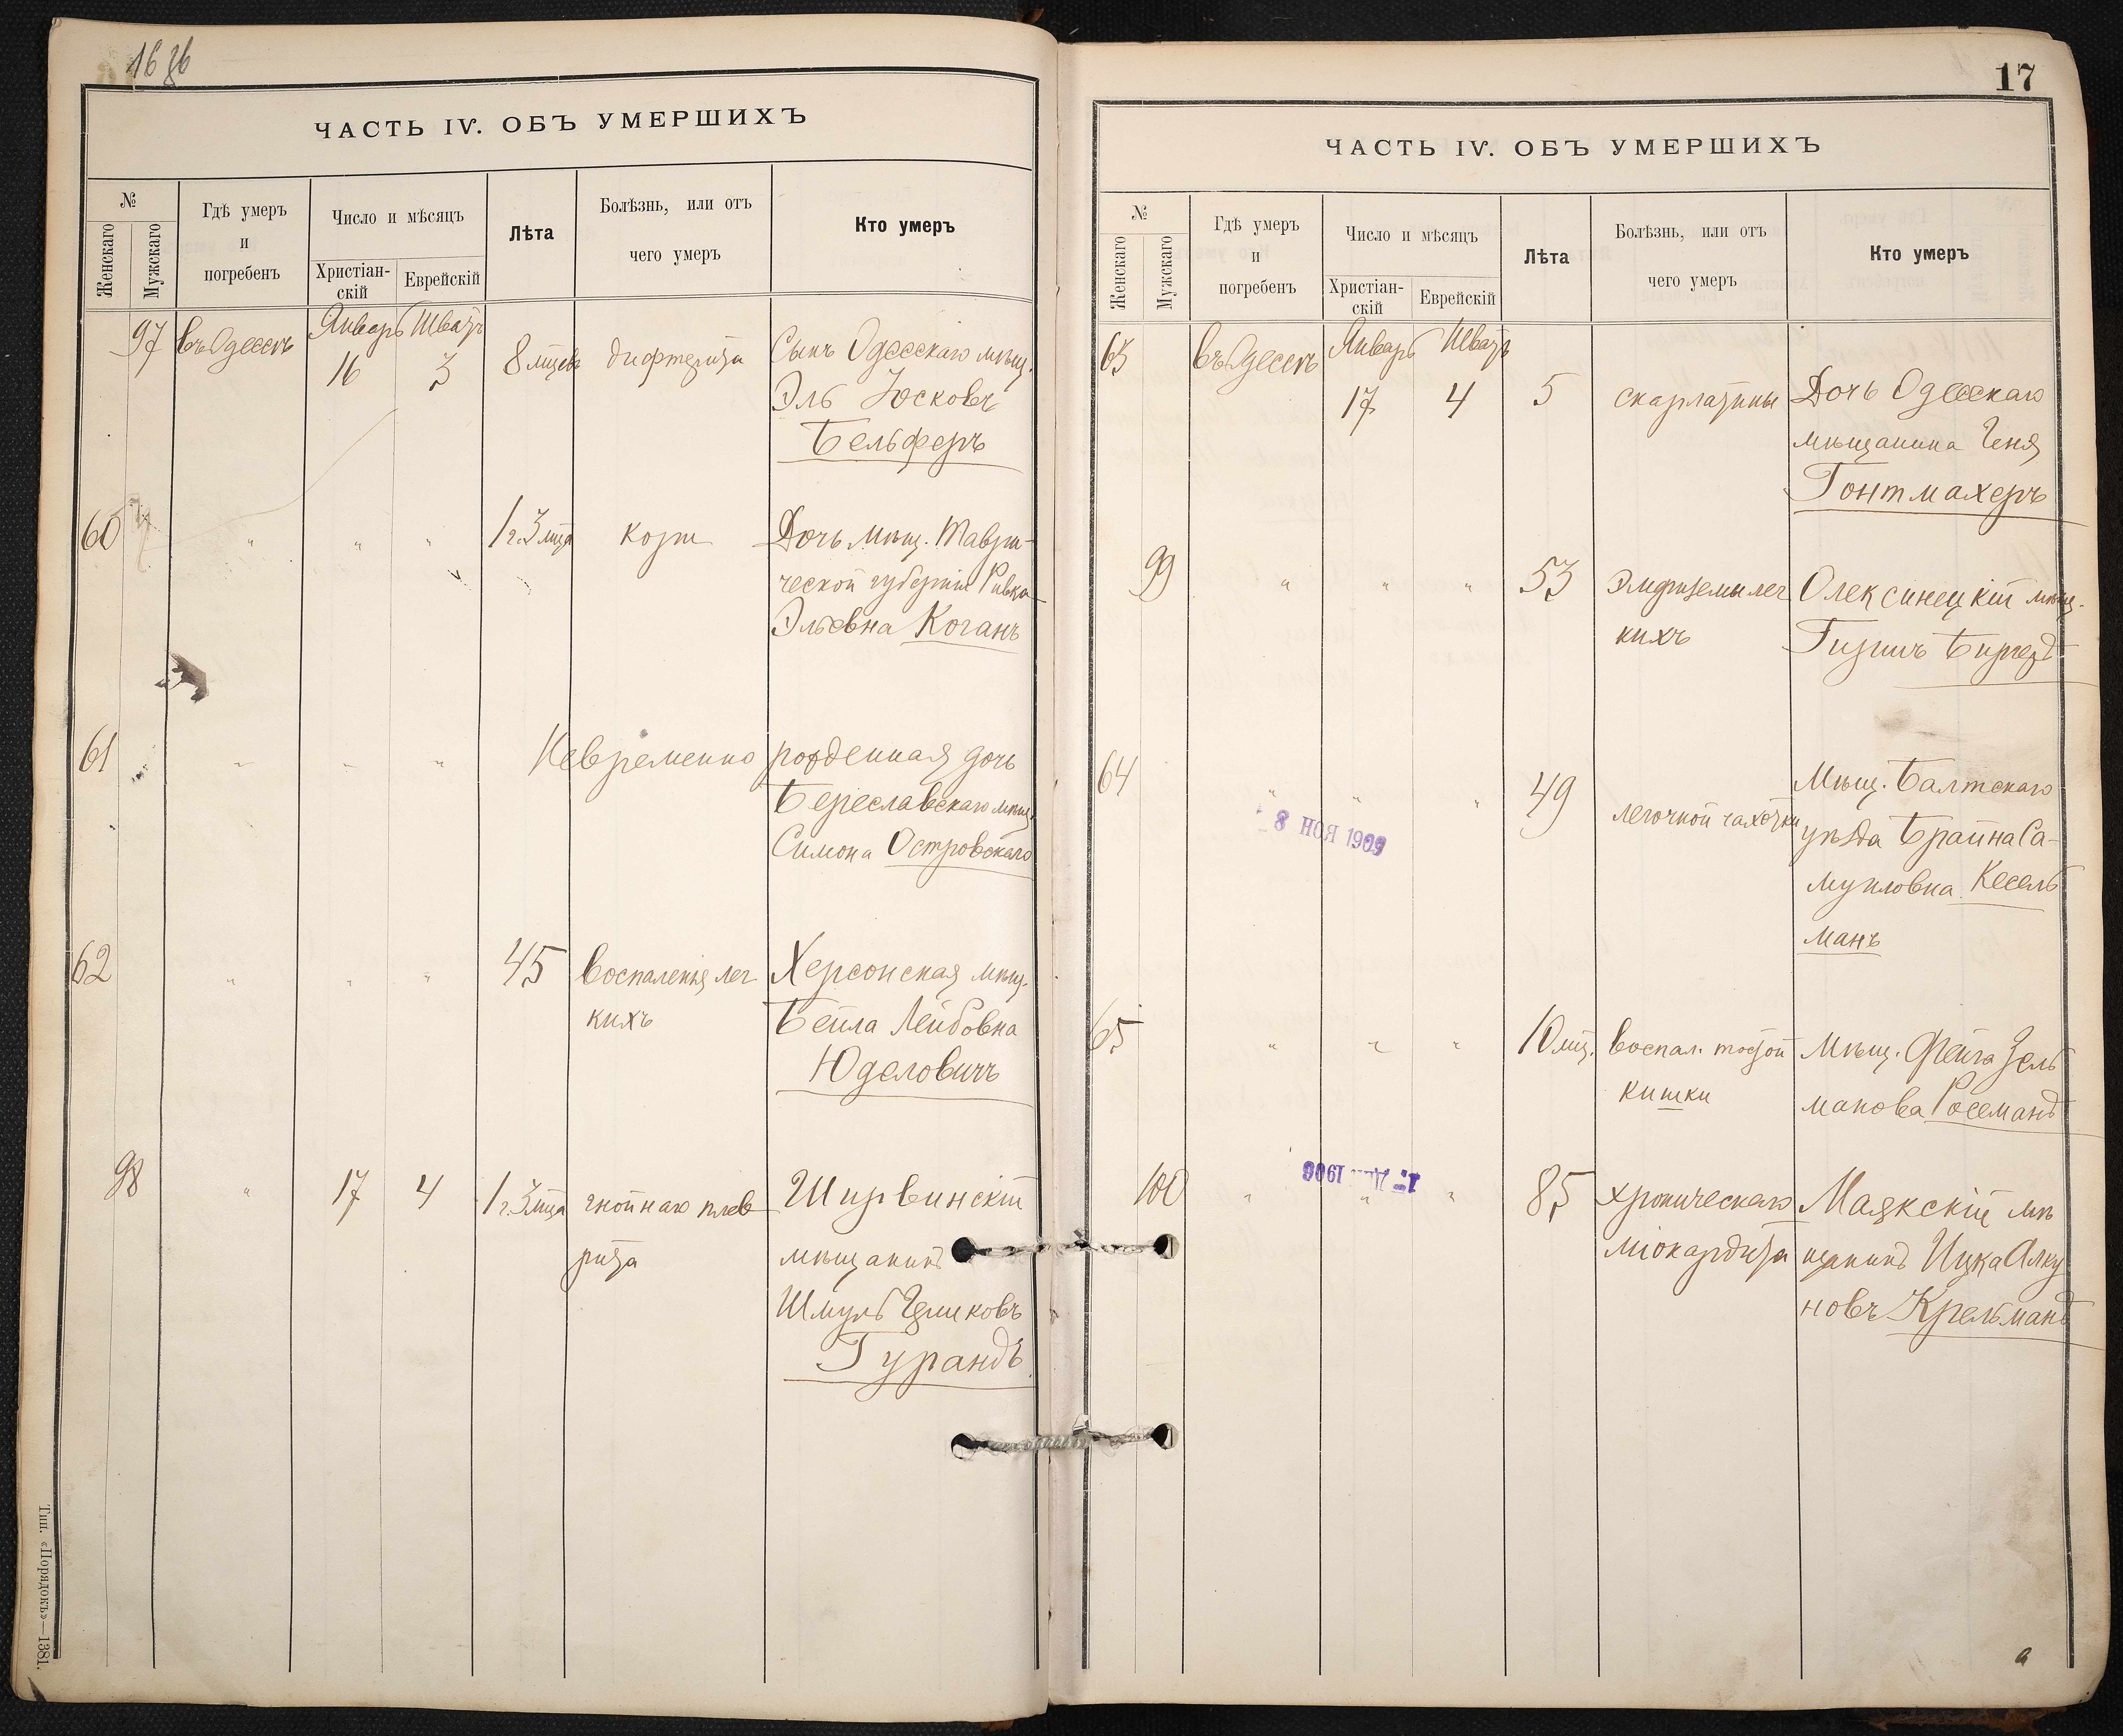 ЧАСТЬ IV. ОБЪ УМЕРШИХЪ
№
Женскаго
Мужскаго
Гдѣ умеръ
и
погребенъ
Число и мѣсяцъ
Христіан-
скій
Еврейскій
Лѣта
Болѣзнь, или отъ
чего умеръ
Кто умеръ
97 въ Одессѣ Январь Шватъ
16 3 8 мцевъ дифтерита Сынъ Одесскаго мѣщ.
Эль Юсковъ
Бельферъ
60 " " " 1 г. 3 мца кори Дочь мѣщ. Таври-
ческой губерніи Ривка
Эльевна Коганъ
61 " " " Невременно рожденная дочь
Береславскаго мѣщ.
Симона Островскаго
62 " " " 45 воспаленія лег Херсонская мѣщ.
кихъ Бейла Лейбовна
Юделовичъ
98 " 17 4 1 г. 3 мца гнойнаго плев Ширвинскій
рита мѣщанинъ
Шмуль
Гурандъ
Тип. «Порядокъ»—1381.
17
ЧАСТЬ IV. ОБЪ УМЕРШИХЪ
№
Женскаго
Мужскаго
Гдѣ умеръ
и
погребенъ
Число и мѣсяцъ
Христіан-
скій
Еврейскій
Лѣта
Болѣзнь, или отъ
чего умеръ
Кто умеръ
63 въ Одессѣ Январь Шватъ
17 4 5 скарлатины Дочь Одесскаго
мѣщанина Геня
Гонтмахеръ
99 " " " 53 эмфиземы лег Олексинецкій мѣщ.
кихъ Гиршъ
64 " " " 49 легочной чахотки Мѣщ. Балтскаго
8 НОЯ 1909
уѣзда Брайна Са-
муиловна Кесель
манъ
65 " " " 10 мц. воспал. толстой Мѣщ. Фейга Зель
кишки манова Россманъ
1 ДЕК 1906
100 " " " 85 хроническаго Маякскій мѣ
міокардита щанинъ Ицка
новъ Крельманъ